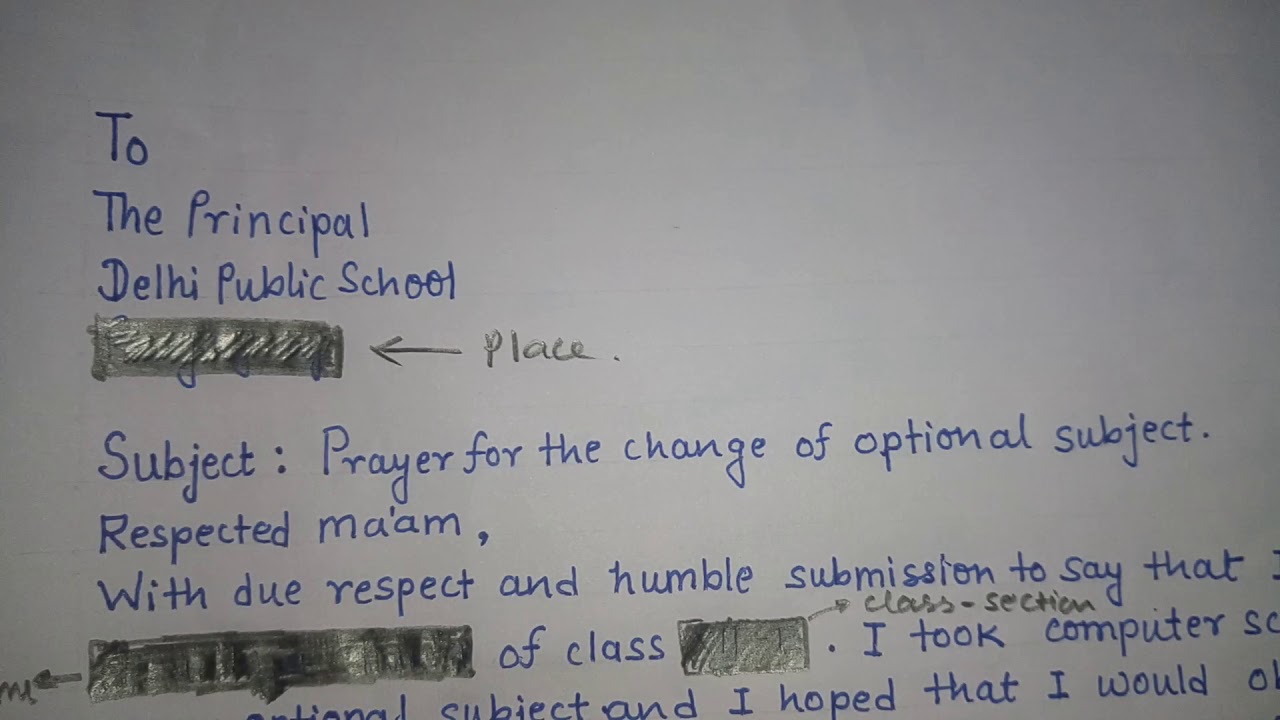 To
The Principal
Delhi Public School
← Place.
Subject : Prayer for the change of optional subject.
Respected ma'am,
With due respect and humble submission to say that I
→ class-section
of class . I took computer sc
optional subject and I hoped that I would ob